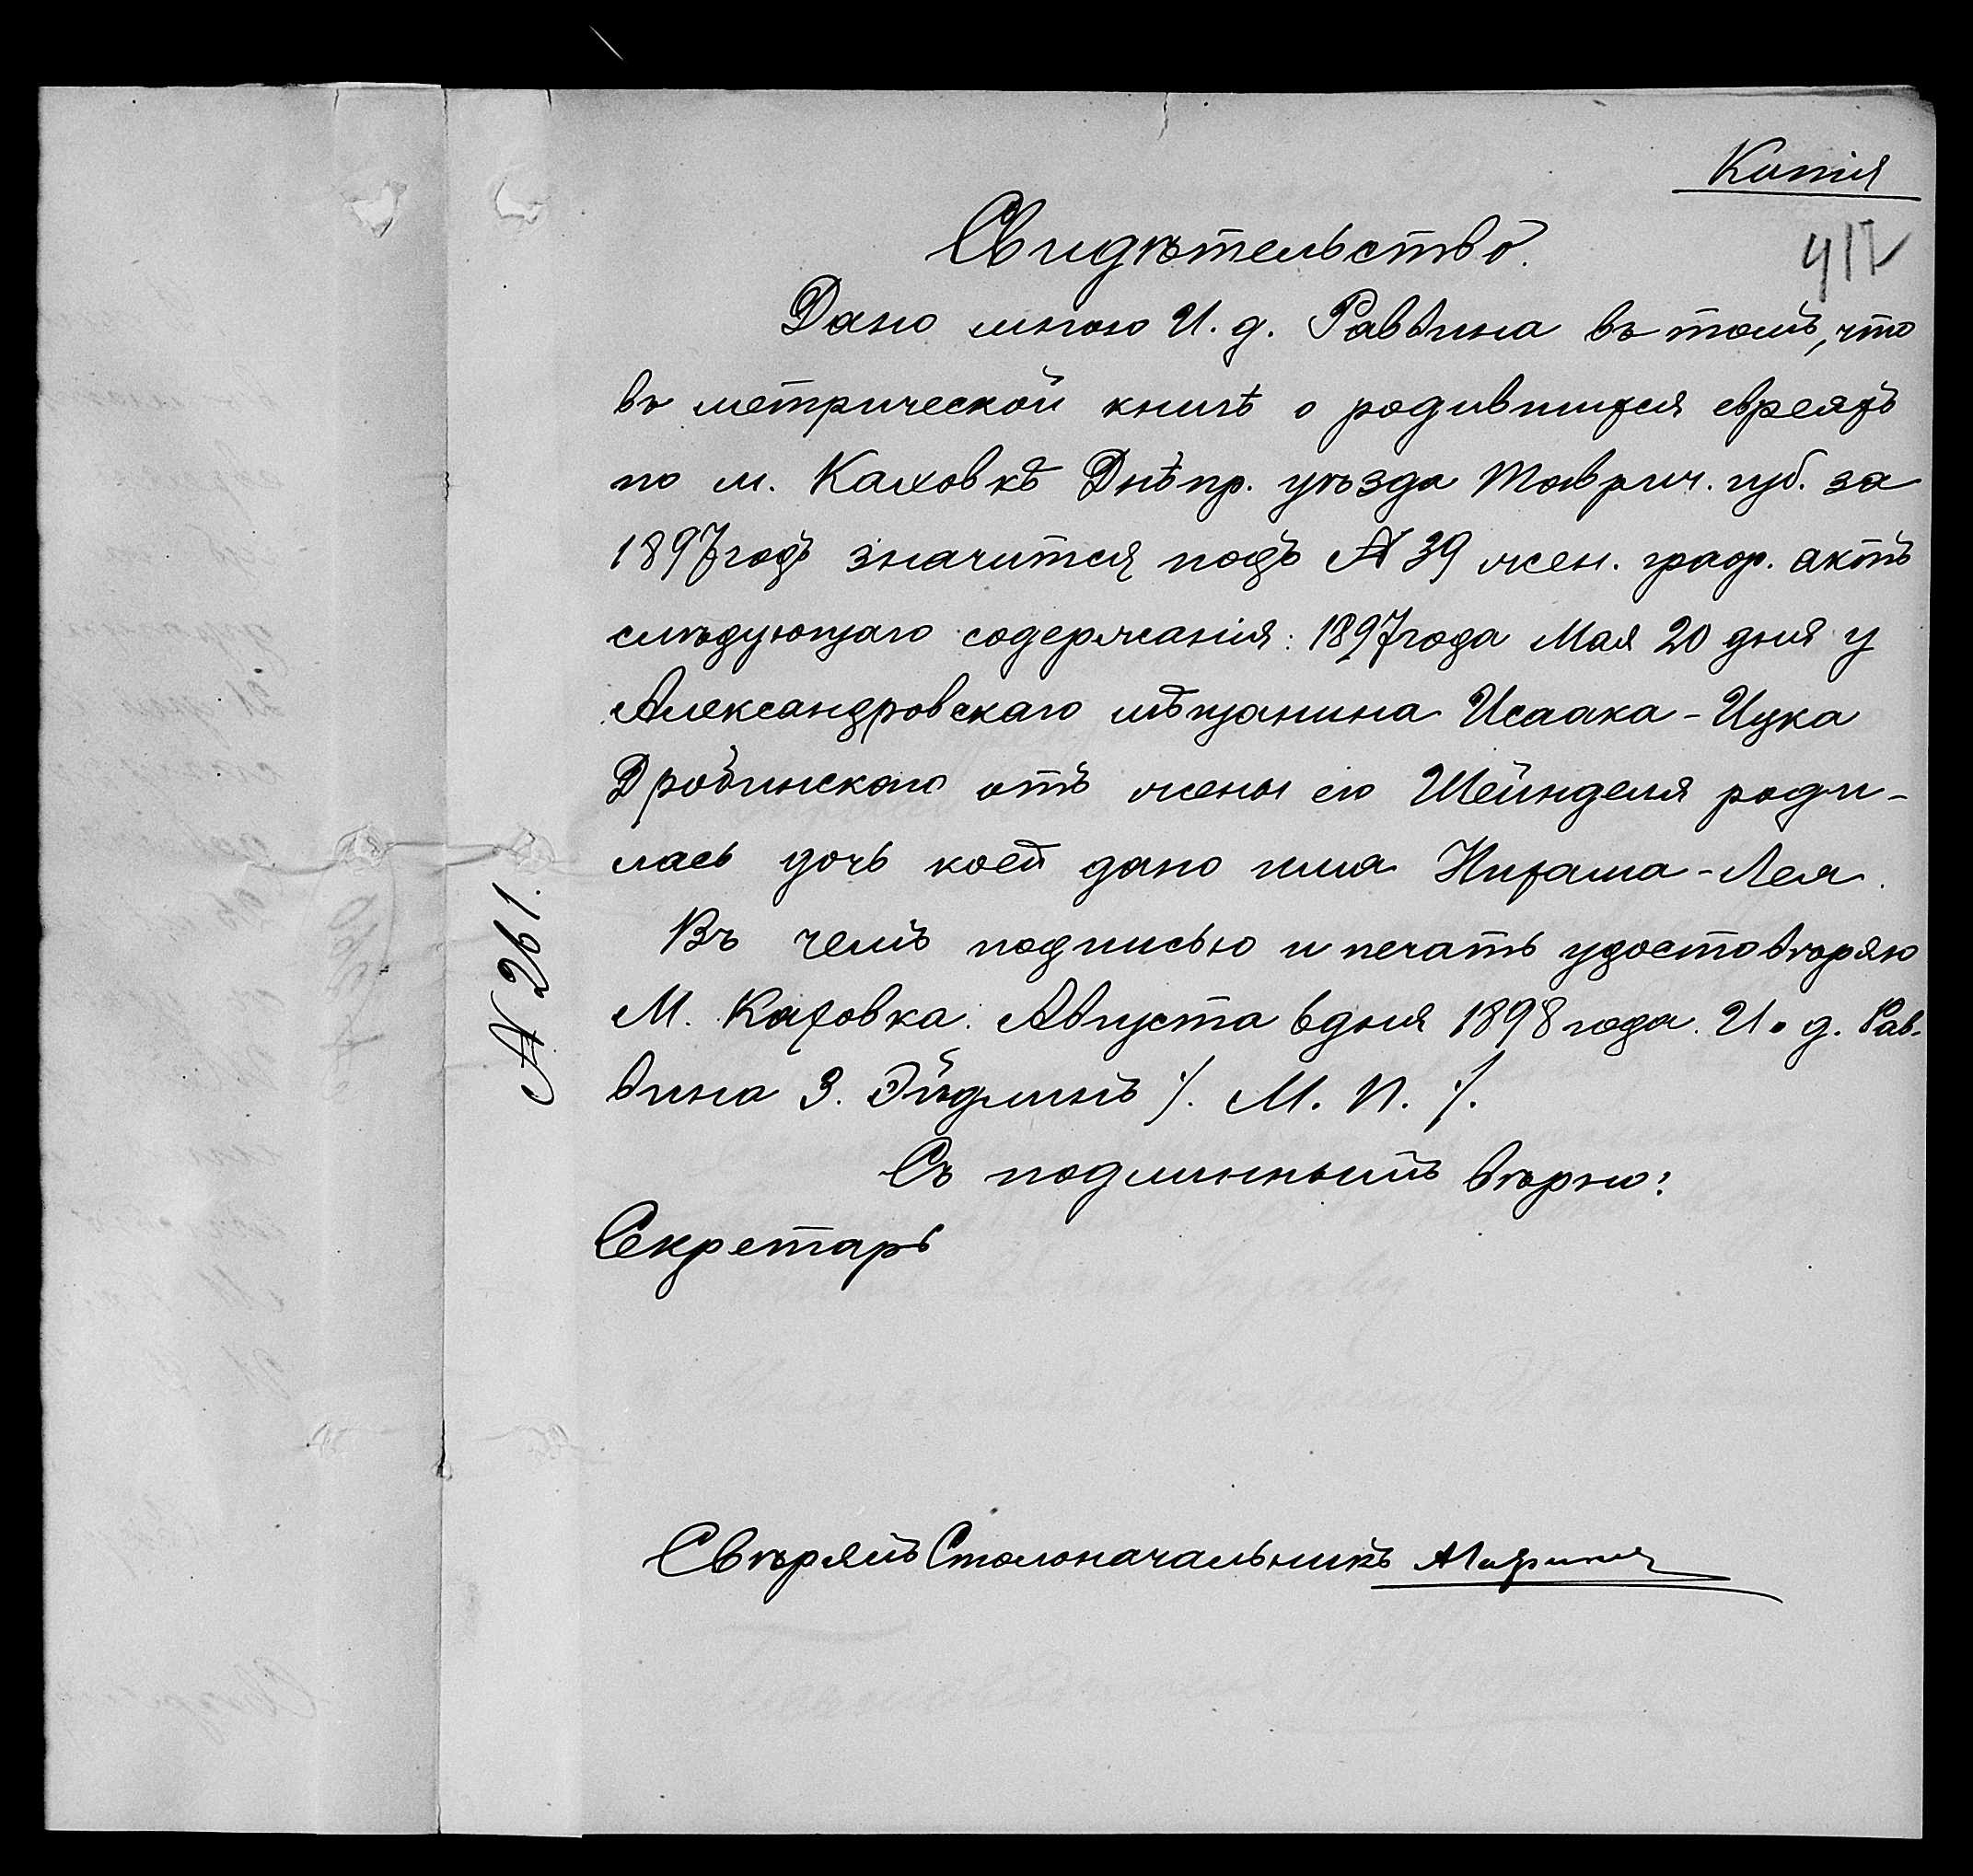 Копія
417
Свидѣтельство.
Дано мною И. д. Раввина въ томъ, что
въ метрической книгѣ о родившихся евреяхъ
по м. Каховкѣ Днѣпр. уѣзда Таврич. губ. за
1897 годъ значится подъ № 39 жен. граф. актъ
слѣдующаго содержанія: 1897 года Мая 20 дня у
Александровскаго мѣщанина Исаака-Ицка
Дробинскаго отъ жены его Шейнделя роди-
лась дочь коей дано имя Нихама-Лея.
Въ чемъ подписью и печать удостовѣряю
М. Каховка. Августа 6 дня 1898 года. И. д. Рав-
вина З. Эйдлинъ /. М. П. /.
Съ подлиннымъ вѣрно:
Секретарь
Свѣрялъ Столоначальникъ
№ 261.